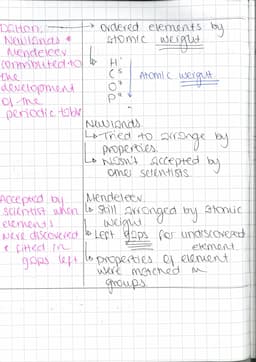 Dalton,
Newlands &
Mendeleev
contributed to
the
development
of the
periodic table
→ ordered elements by
atomic weight
H
C
O
P
Atomic weight
Newlands
↳ Tried to arrange by
properties.
↳ Wasn't accepted by
other scientists
Accepted by
scientist when
elements
were discovered
& fitted in
gaps left
Mendeleev
↳ Still arranged by atomic
weight
↳ Left gaps for undiscovered
element
↳ properties of element
were matched in
groups.